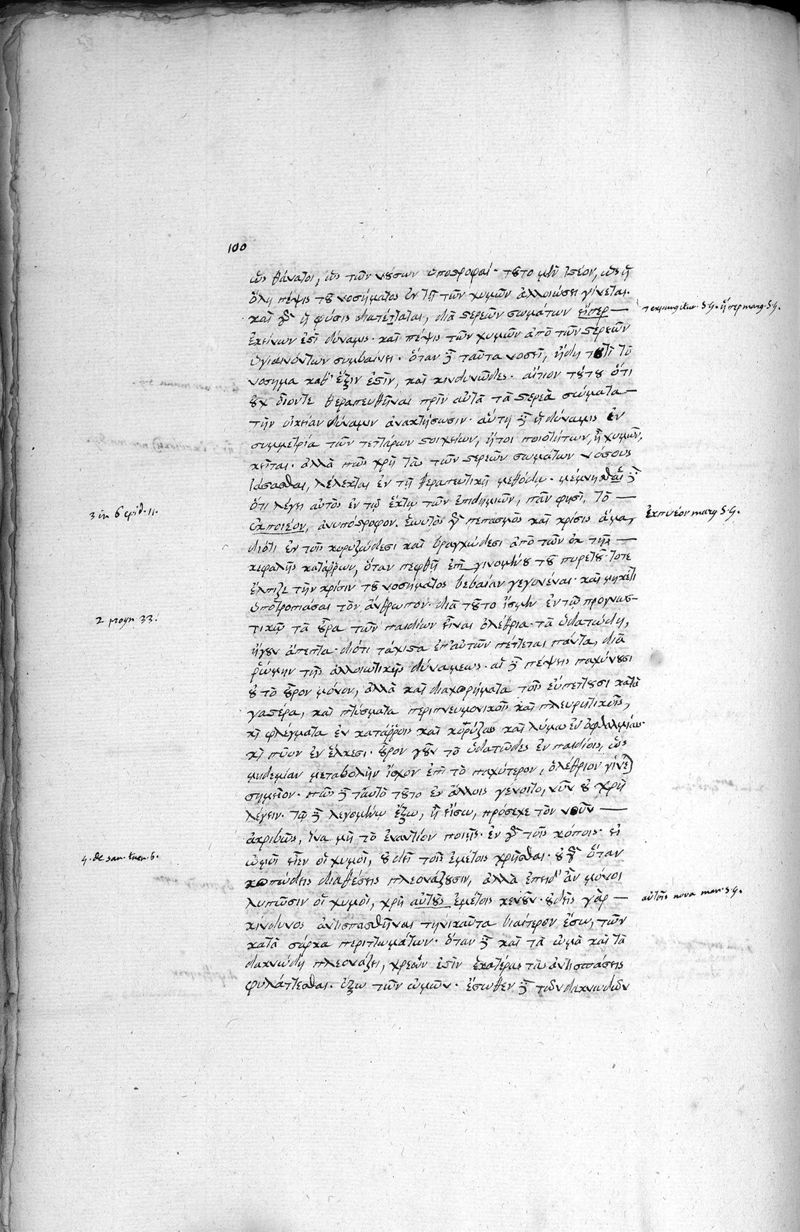 100
ὡς θάνατοι, ὡς τῶν νόσων ὑποστροφαί. τοῦτο μὲν ἰστέον, ὡς ἡ
ὅλη πέψις τοῦ νοσήματος ἐν τῇ τῶν χυμῶν ἀλλοιώσει γίνεται.
καὶ γὰρ ἡ φύσις διατέτακται, διὰ στερεῶν σωμάτων ἥπερ
ἐκείνων ἐστὶ δύναμις. καὶ πέψις τῶν χυμῶν ἀπὸ τῶν στερεῶν
ὑγιαινόντων συμβαίνει. ὅταν δὲ ταῦτα νοσεῖ, ἤδη τότε τὸ
νόσημα καθ' ἕξιν ἐστὶν, καὶ κινδυνῶδες. αἴτιον τούτου ὅτι
οὐχ οἷόντε θεραπευθῆναι πρὶν αὐτὰ τὰ στερεὰ σώματα
τὴν οἰκείαν δύναμιν ἀνακτήσωσιν. αὕτη δὲ ἡ δύναμις ἐν
συμμετρίᾳ τῶν τεττάρων στοιχείων, ἤτοι ποιοτήτων, ἢ χυμῶν,
κεῖται. ἀλλὰ πῶς χρὴ τὰς τῶν στερεῶν σωμάτων νόσους
ἰάσασθαι, λέλεκται ἐν τῇ θεραπευτικῇ μεθόδῳ. μεμνῆσθαι δὲ
ὅτι λέγει αὐτὸς ἐν τῷ ἕκτῳ τῶν ἐπιδημιῶν, πᾶν φησι, τὸ
ἐκποιέον, ἀνυπόστροφον. ἑωυτὸς γὰρ πεπασμὸς καὶ κρίσις ἅμα,
διότι ἐν τοῖς κορυζώδεσι καὶ βραγχώδεσι ἀπὸ τῶν ἐκ τῆς
κεφαλῆς κατάρρων, ὅταν πεφθῇ ἐπιγινομένου τοῦ πυρετοῦ τότε
ἔλπιζε τὴν κρίσιν τοῦ νοσήματος βεβαίαν γεγονέναι. καὶ μηκέτι
ὑποτροπιάσαι τὸν ἄνθρωπον. διὰ τοῦτο ἴσμεν ἐν τῷ προγνωσ-
τικῷ τὰ οὖρα τῶν παιδίων εἶναι ὀλέθρια τὰ ὑδατώδη,
ἤγουν ἄπεπτα. διότι τάχιστα ἐπ' αὐτῶν πέττεται πάντα, διὰ
ῥώμην τῆς ἀλλοιωτικῆς δυνάμεως. αἱ δὲ πέψεις παχύνουσι
οὐ τὸ οὖρον μόνον, ἀλλὰ καὶ διαχωρήματα τοῖς εὐπεπτοῦσι κατὰ
γαστέρα, καὶ πτύσματα περιπνευμονικοῖς καὶ πλευριτικοῖς,
καὶ φλέγματα ἐν κατάρροις καὶ κορύζαις καὶ λήμας ἐν ὀφθαλμίαις
καὶ πῦον ἐν ἕλκεσι. οὖρον γοῦν τὸ ὑδατῶδες ἐν παιδίοις, ὡς
μηδεμίαν μεταβολὴν ἴσχον ἐπὶ τὸ παχύτερον, ὀλέθριον γίνεται
σημεῖον. πῶς δὲ ταὐτὸ τοῦτο ἐν ἄλλοις γένοιτο, νῦν οὐ χρὴ
λέγειν. τῷ δὲ λεγομένῳ ἔξω, ἢ εἴσω, πρόσεχε τὸν νοῦν
ἀκριβῶς, ἵνα μὴ τὸ ἐναντίον ποιῇς. ἐν γὰρ τοῖς κόποις εἰ
ὠμοὶ εἶεν οἱ χυμοὶ, οὐ δεῖ τοῖς ἐμέτοις χρῆσθαι. οὐ γὰρ ὅταν
κοπώδεις διαθέσεις πλεονάζουσιν, ἀλλὰ ἐπειδ' ἂν μόνοι
λυπῶσιν οἱ χυμοὶ, χρὴ αὐτοὺς ἐμέτοις κενοῦν. οὐδεὶς γὰρ
κίνδυνος ἀντισπασθῆναι τηνικαῦτα βιαίτερον ἔσω, τῶν
κατὰ σάρκα περιττωμάτων. ὅταν δὲ καὶ τὰ ὠμὰ καὶ τὰ
δακνώδη πλεονάζει, χρεὼν ἐστὶν ἑκατέρας τὰς ἀντισπάσεις
φυλάττεσθαι. ἔξω τῶν ὠμῶν. ἔσωθεν δὲ τῶν δακνωδῶν
ἥπερ marg. SG.
3 in 6 epid. 11.
ἐκπυέον marg SG.
2 progn 33.
4. de san. tuen. 6.
αὐτοῖς nova man. SG.